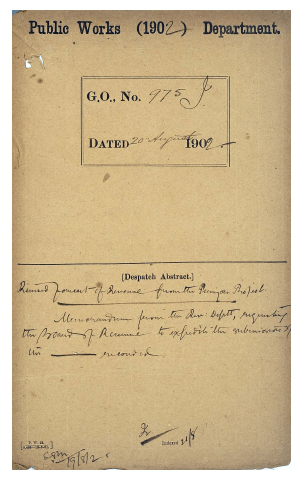 Public Works (1902) Department.
G.O., No. 975 I.
DATED 20 August 1902.
[Despatch Abstract.]
Revised forecast of Revenue from the Periyar Project
Memorandum from the Rev. Deptt., requesting
the Board of Revenue to expedite the submission of
the recorded.
Indexed 21/8
19/8/2